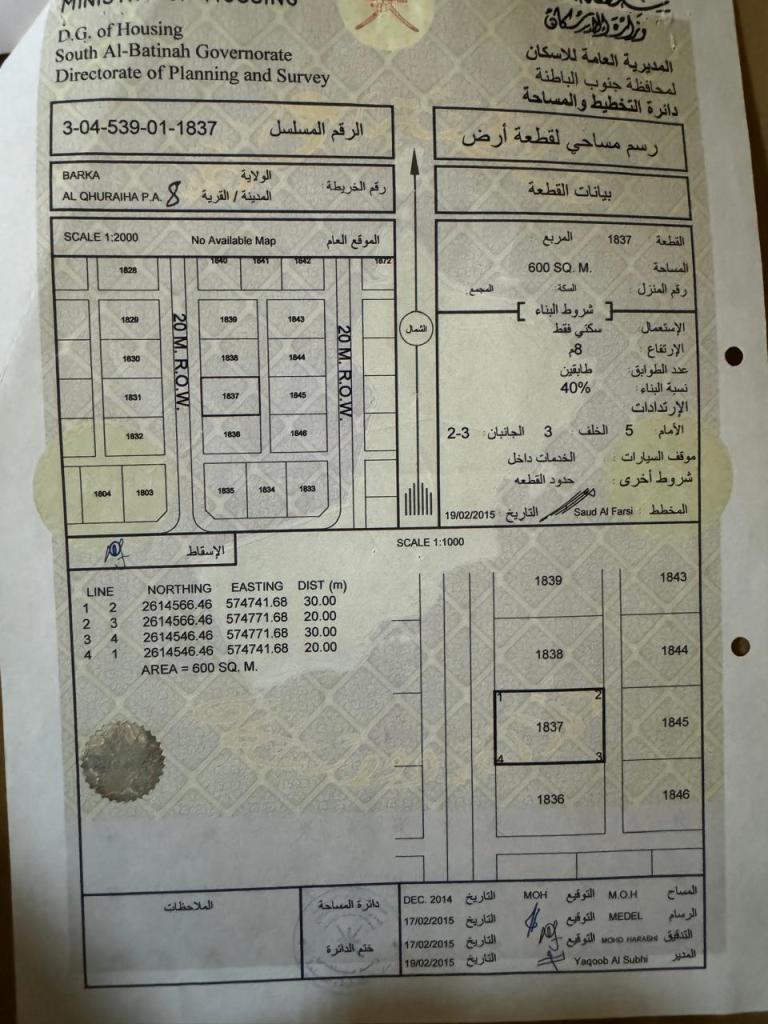 MINISTRY OF HOUSING
D.G. of Housing
South Al-Batinah Governorate
Directorate of Planning and Survey
وزارة الإسكان
المديرية العامة للاسكان
لمحافظة جنوب الباطنة
دائرة التخطيط والمساحة
3-04-539-01-1837 الرقم المسلسل
رسم مساحي لقطعة أرض
BARKA الولاية
AL QHURAIHA P.A. 8 المدينة / القرية
رقم الخريطة:
بيانات القطعة
SCALE 1:2000 No Available Map الموقع العام
القطعة 1837 المربع :
المساحة 600 SQ. M.
رقم المنزل : السكة: المجمع:
شروط البناء
الإستعمال: سكني فقط
الإرتفاع : 8م
عدد الطوابق: طابقين
نسبة البناء : 40%
الإرتدادات
الأمام 5 الخلف : 3 الجانبان : 2-3
موقف السيارات : الخدمات داخل
شروط أخرى : حدود القطعه
المخطط : Saud Al Farsi التاريخ : 19/02/2015
1840 1841 1842 1872
1828
1829 1839 1843
1830 1838 1844
1831 1837 1845
1832 1836 1846
1804 1803 1835 1834 1833
20 M. R.O.W.
20 M. R.O.W.
الشمال
الإسقاط
SCALE 1:1000
LINE NORTHING EASTING DIST (m)
1 2 2614566.46 574741.68 30.00
2 3 2614566.46 574771.68 20.00
3 4 2614546.46 574771.68 30.00
4 1 2614546.46 574741.68 20.00
AREA = 600 SQ. M.
1839 1843
1838 1844
1 2
1837 1845
4 3
1836 1846
الملاحظات
دائرة المساحة
ختم الدائرة
المساح M.O.H التوقيع MOH التاريخ DEC. 2014
الرسام MEDEL التوقيع التاريخ 17/02/2015
التدقيق MOHD HARASHI التوقيع التاريخ 17/02/2015
المدير Yaqoob Al Subhi التاريخ 19/02/2015